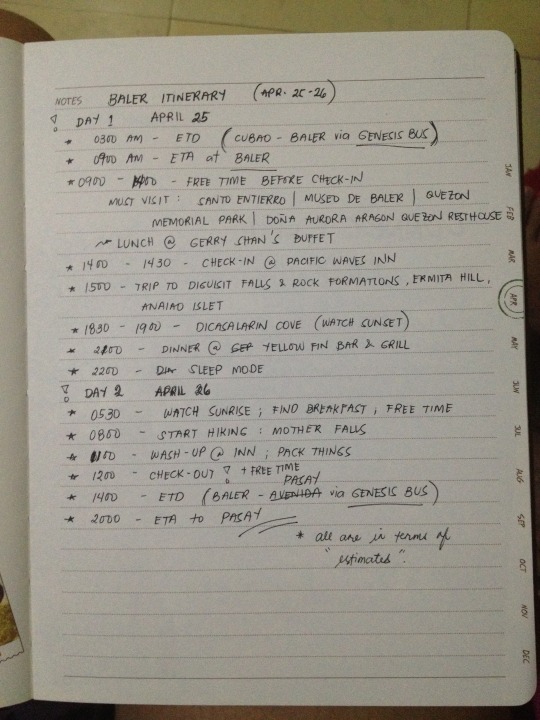 NOTES BALER ITINERARY (APR. 25-26)
DAY 1 APRIL 25
* 0300 AM - ETD (CUBAO - BALER via GENESIS BUS)
* 0900 AM - ETA at BALER
* 0900 - 1400 - FREE TIME BEFORE CHECK-IN
MUST VISIT: SANTO ENTIERRO | MUSEO DE BALER | QUEZON
MEMORIAL PARK | DOÑA AURORA ARAGON QUEZON RESTHOUSE
LUNCH @ GERRY SHAN'S BUFFET
* 1400 - 1430 - CHECK-IN @ PACIFIC WAVES INN
* 1500 - TRIP TO DIGUISIT FALLS & ROCK FORMATIONS, ERMITA HILL,
ANAIAO ISLET
* 1830 - 1900 - DICASALARIN COVE (WATCH SUNSET)
* 2100 - DINNER @ YELLOW FIN BAR & GRILL
* 2200 - SLEEP MODE
DAY 2 APRIL 26
* 0530 - WATCH SUNRISE; FIND BREAKFAST, FREE TIME
* 0800 - START HIKING: MOTHER FALLS
* 1100 - WASH-UP @ INN; PACK THINGS
* 1200 - CHECK-OUT ! + FREE TIME
PASAY
* 1400 - ETD (BALER - AVENIDA via GENESIS BUS)
* 2000 - ETA to PASAY
* all are in terms of
"estimated".
JAN
FEB
MAR
APR
MAY
JUN
JUL
AUG
SEP
OCT
NOV
DEC